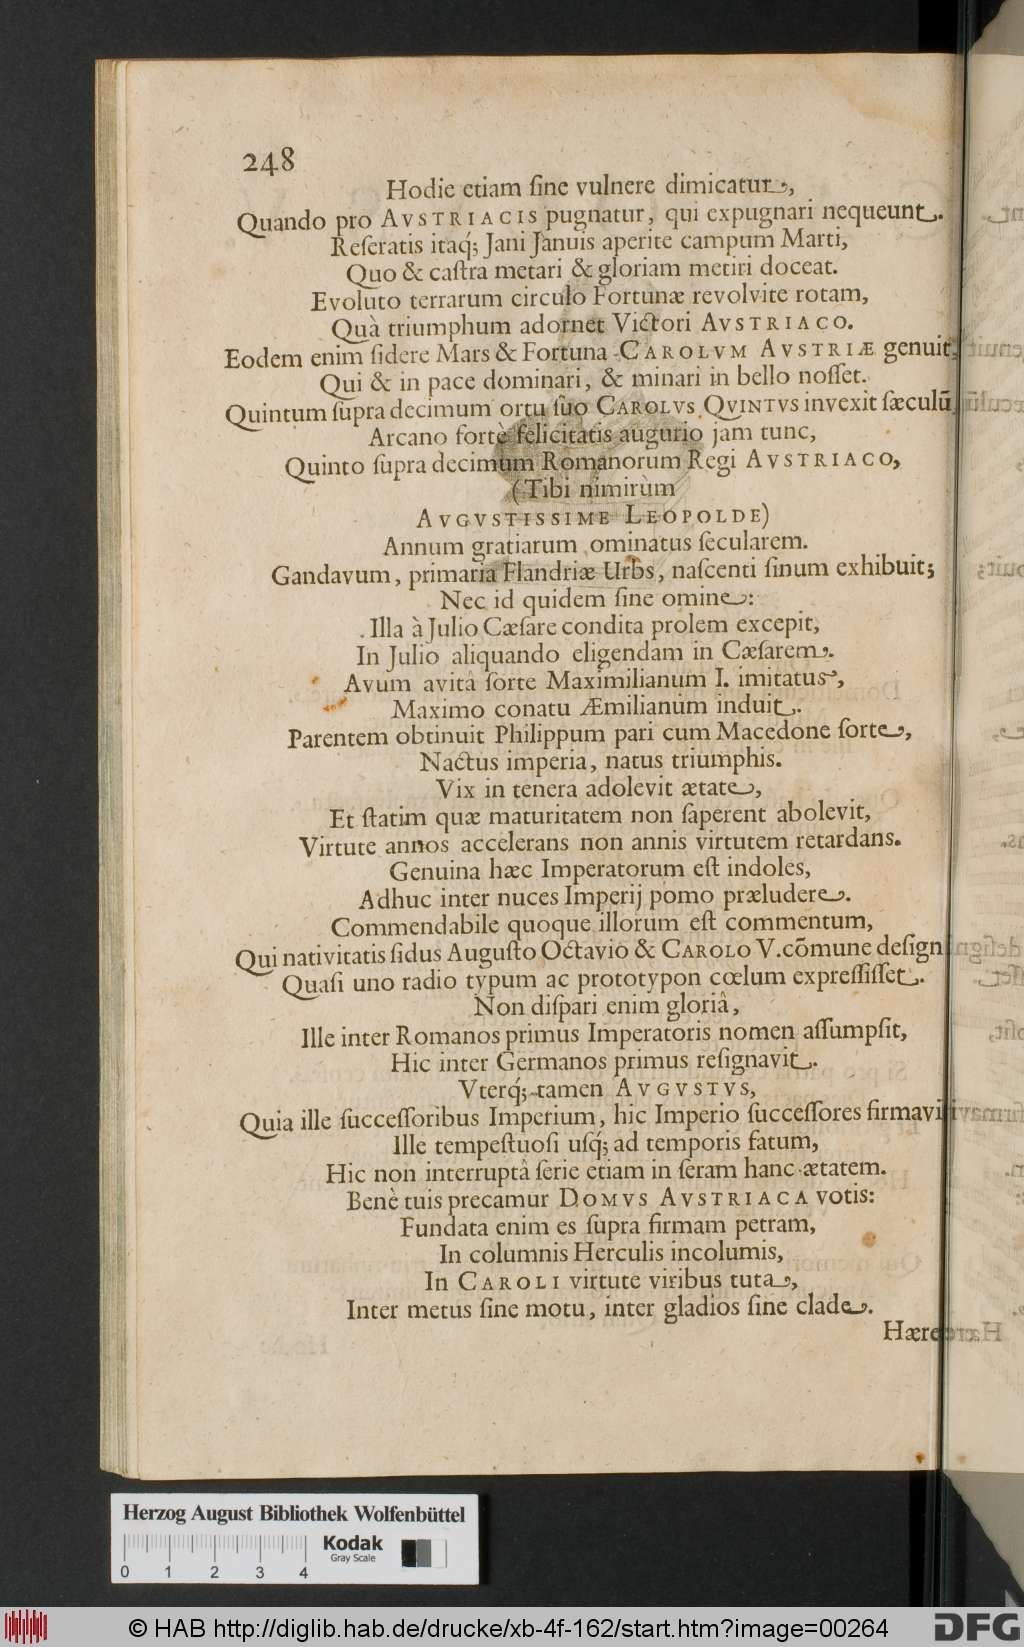 248
Hodie etiam ſine vulnere dimicatur,
Quando pro AVSTRIACIS pugnatur, qui expugnari nequeunt.
Reſeratis itaq́; Jani Januis aperite campum Marti,
Quo & caſtra metari & gloriam metiri doceat.
Evoluto terrarum circulo Fortunæ revolvite rotam,
Quà triumphum adornet Victori AVSTRIACO.
Eodem enim ſidere Mars & Fortuna CAROLVM AVSTRIÆ genuit,
Qui & in pace dominari, & minari in bello noſſet.
Quintum ſupra decimum ortu ſuo CAROLVS QVINTVS invexit ſæculū
Arcano fortè felicitatis augurio jam tunc,
Quinto ſupra decimum Romanorum Regi AVSTRIACO,
(Tibi nimirùm
AVGVSTISSIME LEOPOLDE)
Annum gratiarum ominatus ſecularem.
Gandavum, primaria Flandriæ Urbs, naſcenti ſinum exhibuit;
Nec id quidem ſine omine:
Illa à Julio Cæſare condita prolem excepit,
In Julio aliquando eligendam in Cæſarem.
Avum avitâ ſorte Maximilianum I. imitatus,
Maximo conatu Æmilianum induit.
Parentem obtinuit Philippum pari cum Macedone ſorte,
Nactus imperia, natus triumphis.
Vix in tenera adolevit ætate,
Et ſtatim quæ maturitatem non ſaperent abolevit,
Virtute annos accelerans non annis virtutem retardans.
Genuina hæc Imperatorum eſt indoles,
Adhuc inter nuces Imperij pomo præludere.
Commendabile quoque illorum eſt commentum,
Qui nativitatis ſidus Auguſto Octavio & CAROLO V. cōmune deſign
Quaſi uno radio typum ac prototypon cœlum expreſſiſſet.
Non diſpari enim gloriâ,
Ille inter Romanos primus Imperatoris nomen aſſumpſit,
Hic inter Germanos primus reſignavit.
Vterq́; tamen AVGVSTVS,
Quia ille ſucceſſoribus Imperium, hic Imperio ſucceſſores firmavit
Ille tempeſtuoſi uſq́; ad temporis fatum,
Hic non interruptâ ſerie etiam in ſeram hanc ætatem.
Benè tuis precamur DOMVS AVSTRIACA votis:
Fundata enim es ſupra firmam petram,
In columnis Herculis incolumis,
In CAROLI virtute viribus tuta,
Inter metus ſine motu, inter gladios ſine clade.
Hære
Herzog August Bibliothek Wolfenbüttel
Kodak
Gray Scale
0 1 2 3 4
© HAB http://diglib.hab.de/drucke/xb-4f-162/start.htm?image=00264
DFG